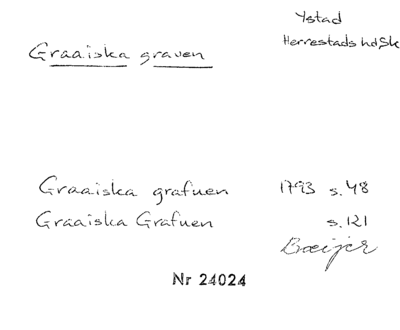 Ystad
Herrestads hd Sk
Graaiska graven
Graaiska grafuen 1793 s. 48
Graaiska Grafuen s. 121
Bæijer
Nr 24024